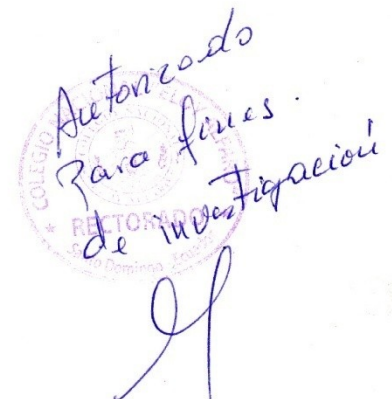 Autorizado
Para fines.
de investigación
COLEGIO
RECTORADO
Santo Domingo